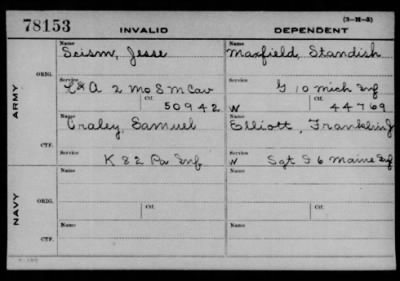 78153 INVALID DEPENDENT (3-H-5)
Name Name
Scism, Jesse Maxfield, Standish
ORIG.
Service Service
L & A 2 Mo S M Cav G 10 Mich Inf
ARMY
Ctf. Ctf.
50942 W 44769
Name Name
Craley, Samuel Elliott, Franklin J
CTF.
Service Service
K 82 Pa Inf W Sgt S 6 Maine Inf
Name Name
ORIG.
NAVY
Ctf. Ctf.
Name Name
CTF.